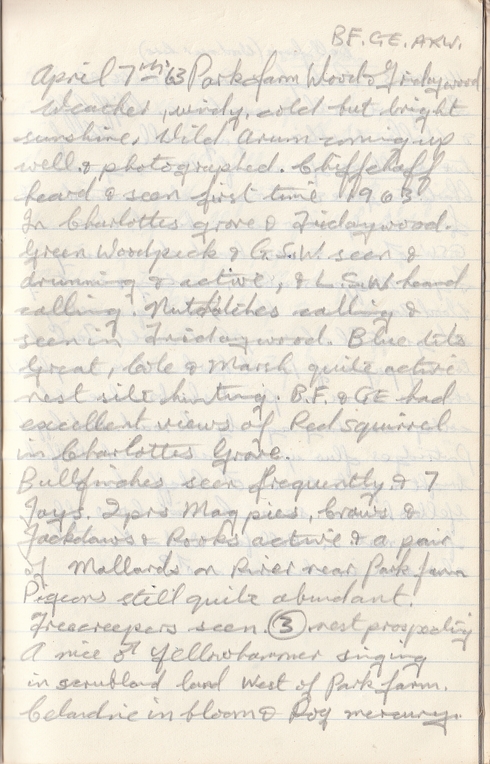 B.F. G.E. A.K.W.
April 7th '63 Parksfarm Wood & Fridaywood
Weather, windy, cold but bright
sunshine. Wild Arum coming up
well & photographed. Chiffchaff
heard & seen first time 1963.
In Charlottes grove & Fridaywood.
Green Woodpeck & G.S.W. seen &
drumming & active, & L.S.W. heard
calling. Nuthatches calling &
seen in Fridaywood. Blue tits
Great, Cole & Marsh quite active
nest site hunting. B.F. & GE had
excellent views of Red Squirrel
in Charlottes Grove.
Bullfinches seen frequently & 7
Jays. 2 prs Magpies, Crows, &
Jackdaws & Rooks active & a pair
of Mallards on River near Park farm
Pigeons still quite abundant.
Treecreepers seen. (3) nest prospecting
A nice ♂ Yellowhammer singing
in scrubland land West of Park farm.
Celandine in bloom & Dog mercury.